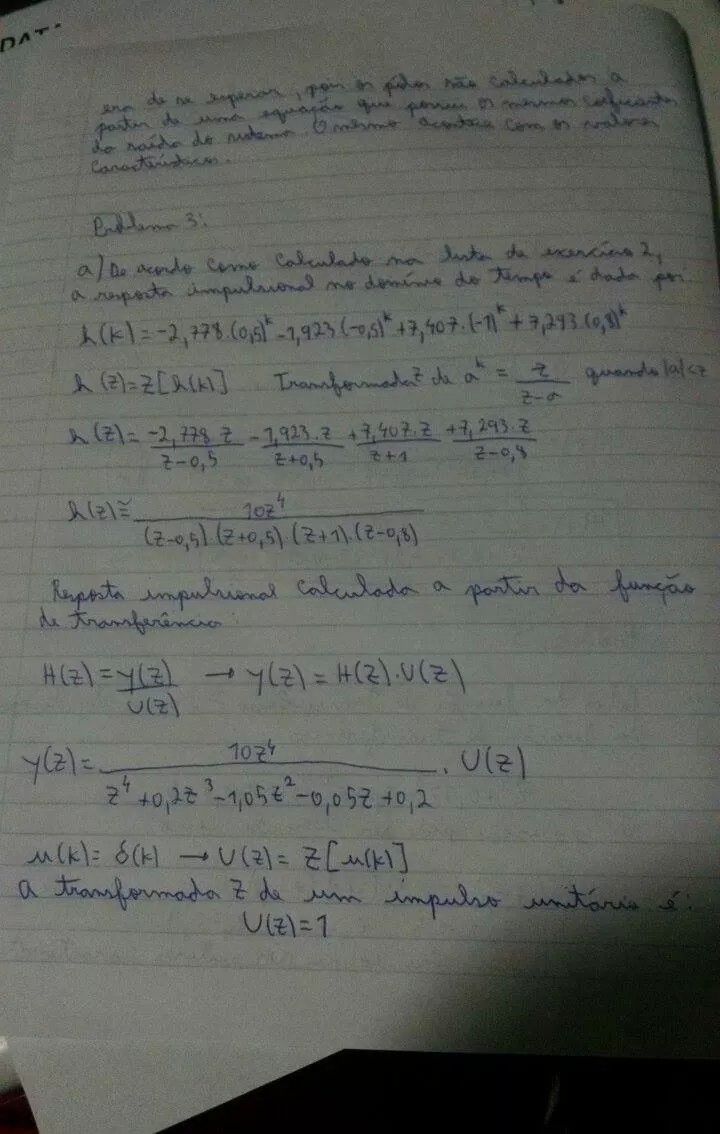 DATA
era de se esperar, pois os pólos são calculados a
partir de uma equação que possui os mesmos coeficientes
da saída do sistema. O mesmo acontece com os valores
característicos.
Problema 3:
a) De acordo como calculado na lista de exercício 2,
a resposta impulsional no domínio do tempo é dada por
h(k) = -2,778.(0,5)^k -1,923(-0,5)^k +7,407.(-1)^k + 7,293(0,8)^k
h(z)=Z[h(k)] Transformada Z de a^k = z/(z-a) quando |a|<z
h(z)= -2,778 z/(z-0,5) -1,923.z/(z+0,5) +7,407.z/(z+1) +7,293.z/(z-0,8)
h(z)≅ 10z^4/((z-0,5).(z+0,5).(z+1).(z-0,8))
Resposta impulsional calculada a partir da função
de transferência:
H(z)=Y(z)/U(z) → Y(z) = H(z).U(z)
Y(z)= 10z^4/(z^4+0,2z^3-1,05z^2-0,05z+0,2) . U(z)
u(k)= δ(k) → U(z)= Z[u(k)]
a transformada Z de um impulso unitário é:
U(z)=1